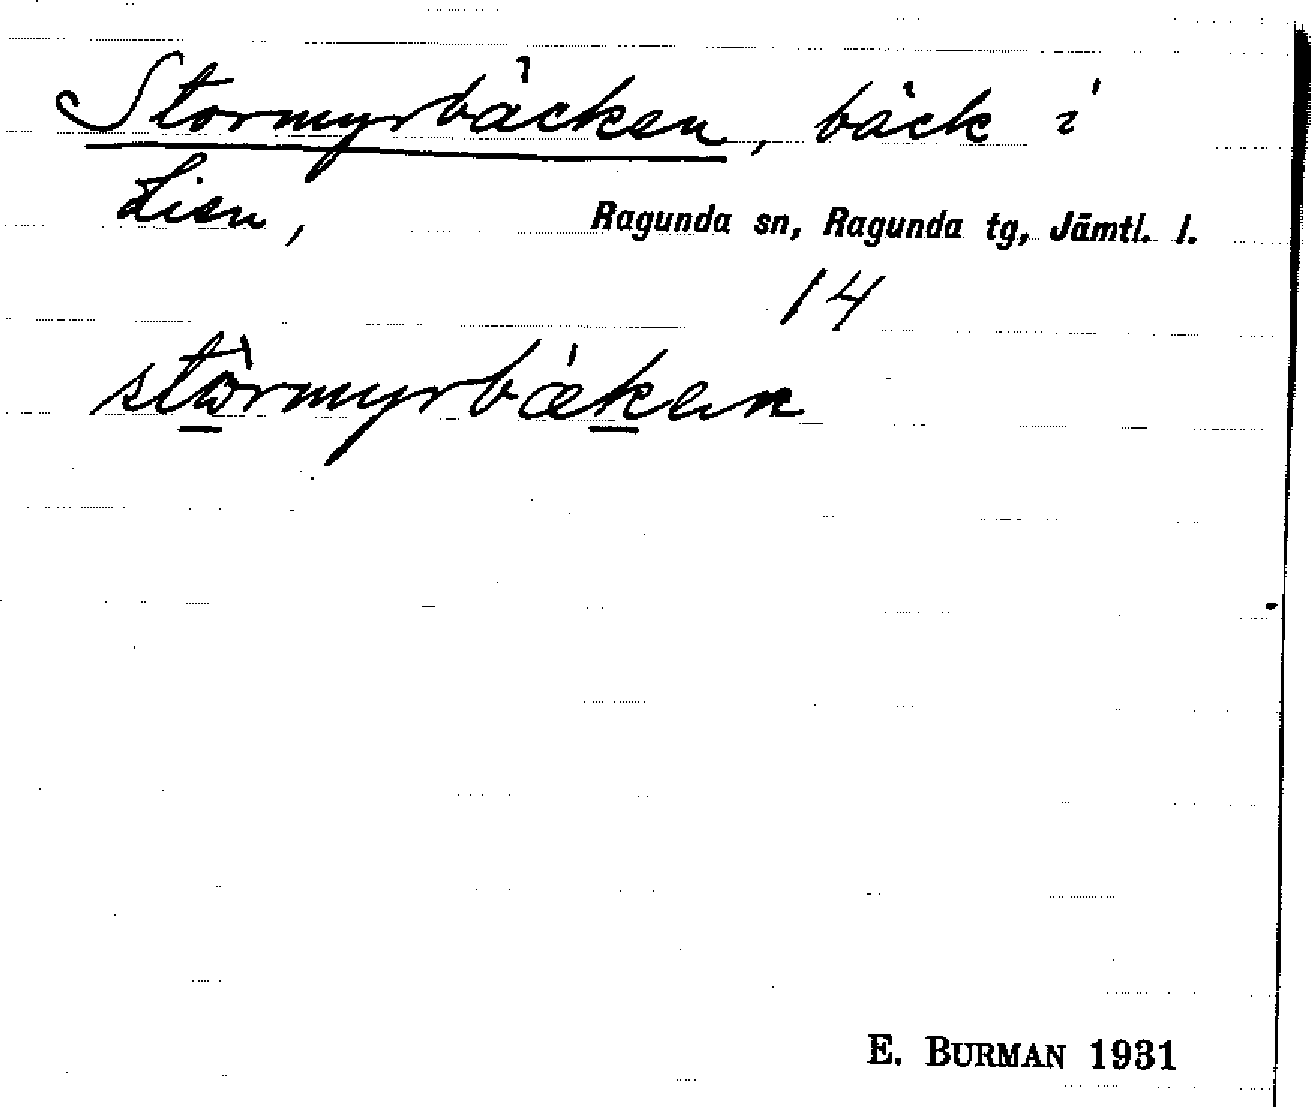 Stormyrbäcken, bäck i
Lien,
Ragunda sn, Ragunda tg, Jämtl. l.
14
stòrmyrbǽken
E. BURMAN 1931